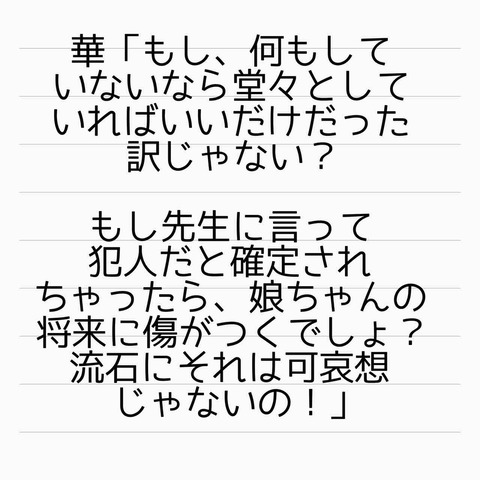 華「もし、何もして
いないなら堂々として
いればいいだけだった
訳じゃない？
もし先生に言って
犯人だと確定され
ちゃったら、娘ちゃんの
将来に傷がつくでしょ？
流石にそれは可哀想
じゃないの！」